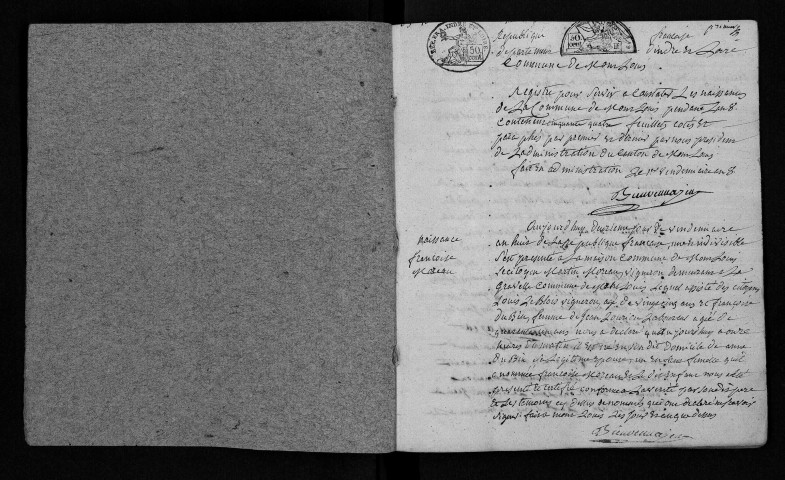 République française
département d'indre et Loire
Commune de Mont Louis
Registre pour servir a Constater Les naissances
de La Commune de Mont Louis pendant L'an 8
contenant cinquante quatre feuillets cotés et
paraphés par premier et dernier par nous président
de L'administration du Canton de Mont Louis
fait en administration Le 1er vendemiaire an 8
Bienvenu
naissance
françoise
Moreau
Aujourd'huy deuxieme jour de vendemiaire
an huit de La republique francaise, une et indivisible
s'est presenté a La maison Commune de Mont Louis
Le citoyen Martin Moreau, vigneron demeurant a La
Gravelle Commune de Mont Louis Lequel assisté des citoyens
Louis Le Blois vigneron, agé de vingt cinq ans et françoise
Dubin, femme de Jean agée de
ans nous a declaré qu'aujourd'huy a onze
heures du matin est né en son dit Domicile de anne
Dubin sa Legitime epouse, un enfant femelle qu'il
a nommée francoise Moreau Le dit enfant nous a été
presenté et certifié conforme a La verité par Le dit pere
et Les temoins cy dessus denommés qui ont declaré ne savoir
signer. fait a mont Louis Les jour et an que dessus
Bienvenu